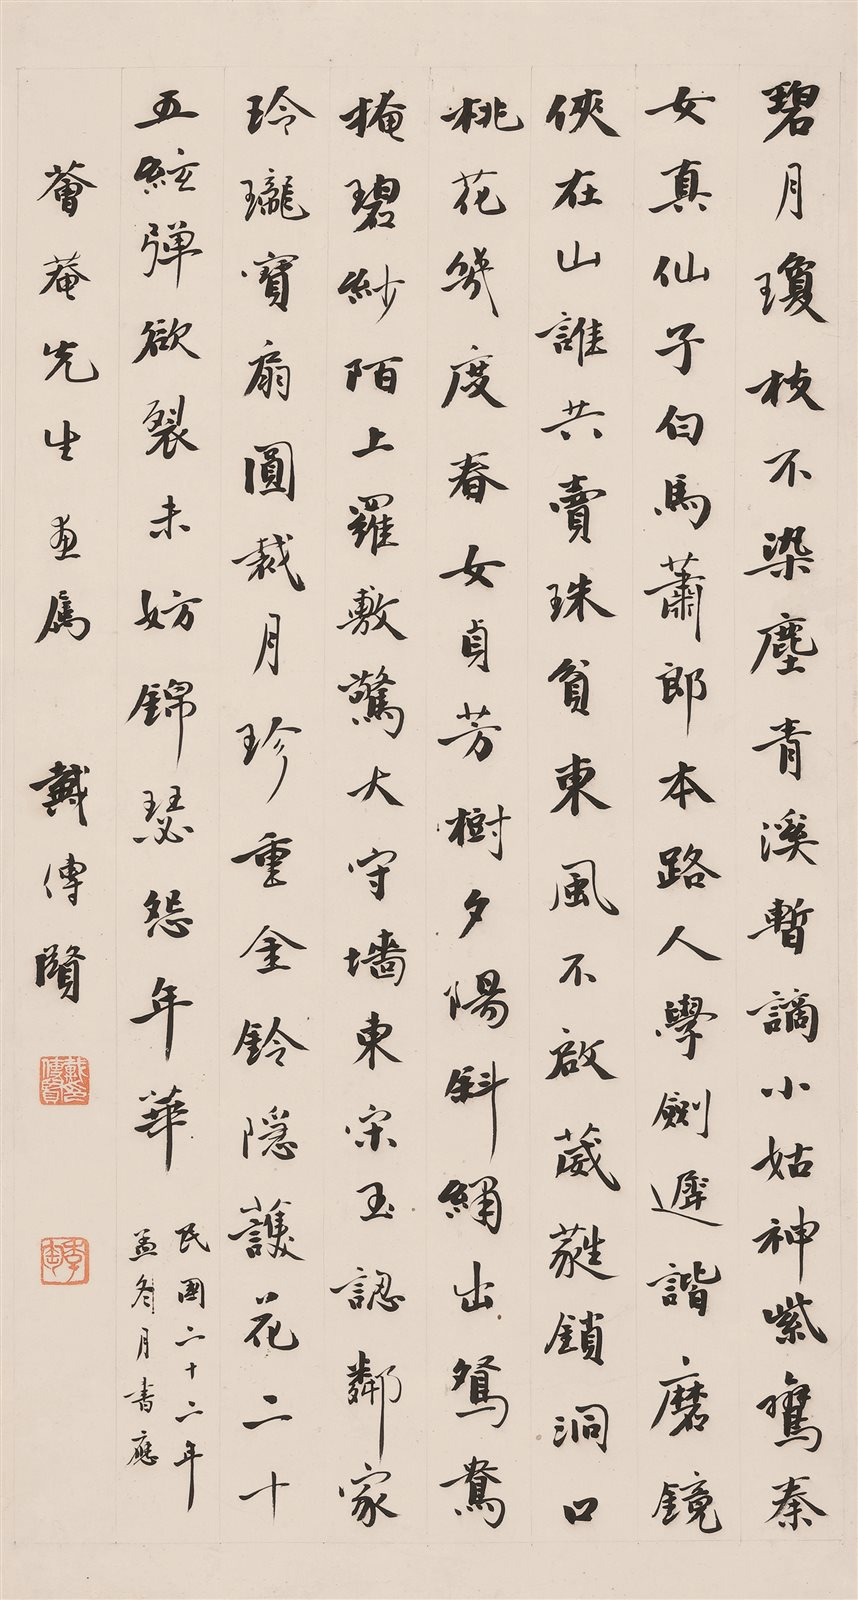 碧月瓊枝不染塵青溪暫謫小姑神紫鸞秦
女真仙子白馬蕭郎本路人學劍遲諧磨鏡
俠在山誰共賣珠貧東風不啟葳蕤鎖洞口
桃花幾度春女貞芳樹夕陽斜繡出鴛鴦
掩碧紗陌上羅敷驚大守墻東宋玉認鄰家
玲瓏寶扇圓裁月珍重金鈴隱護花二十
五絃彈欲裂未妨錦瑟怨年華
民國二十二年
孟冬月書應
薈菴先生
戴傳賢
戴傳賢印
季陶